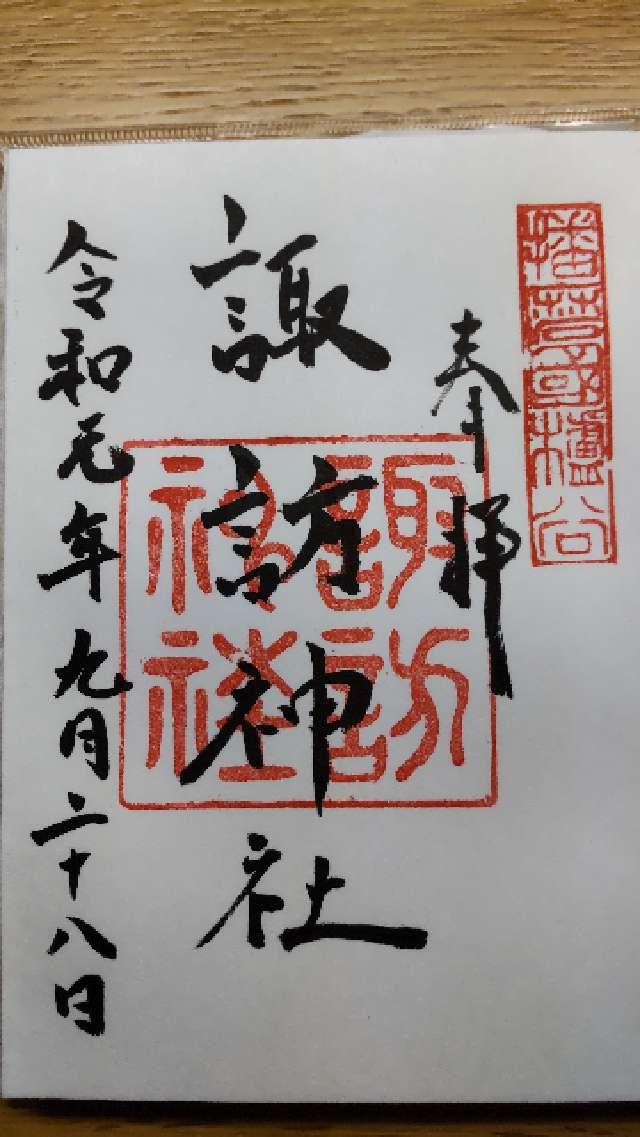 播磨國櫨谷
奉拝
諏訪神社
諏訪
神社
令和元年九月二十八日